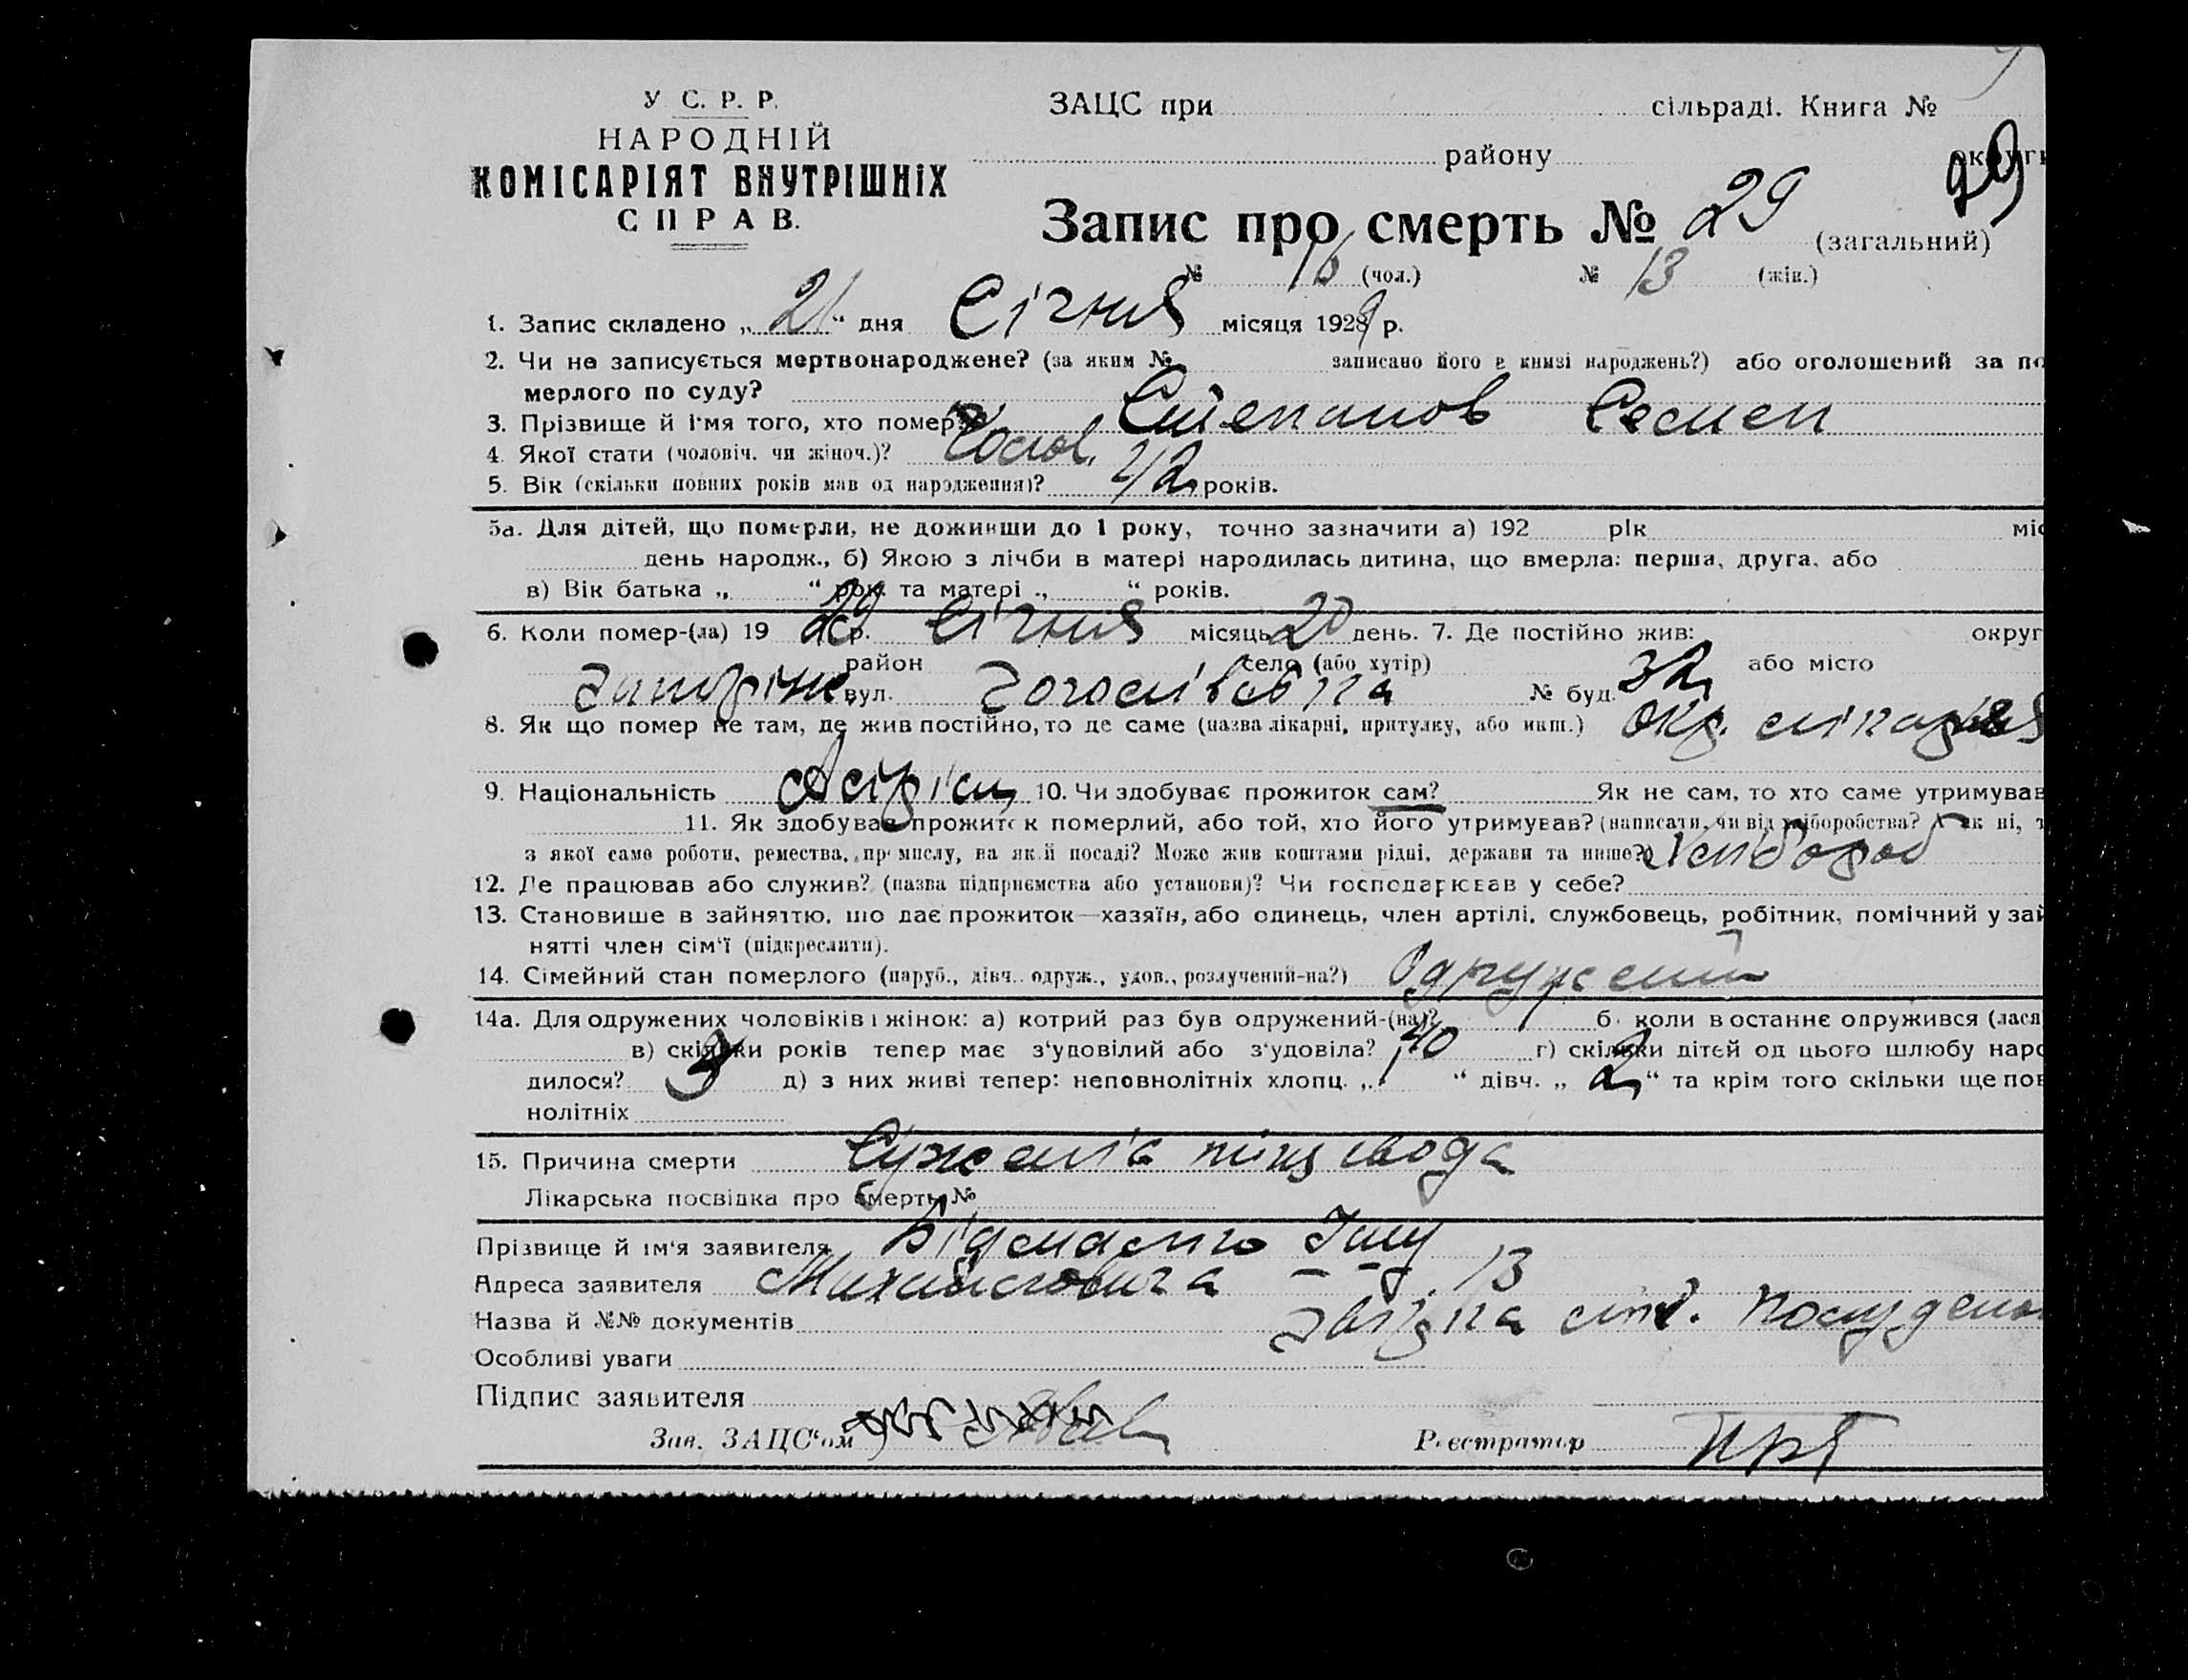 У С. Р. Р.
НАРОДНІЙ
КОМІСАРІЯТ ВНУТРІШНІХ
СПРАВ.
ЗАЦС при сільраді. Книга №
району округи
29
Запис про смерть № 29 (загальний)
№ 16 (чол.) № 13 (жін.)
1. Запис складено „ 21 “ дня Січня місяця 1929 р.
2. Чи не записується мертвонароджене? (за яким № записано його в книзі народжень?) або оголошений за по
мерлого по суду?
3. Прізвище й ім'я того, хто помер Степанов Семен
4. Якої стати (чоловіч. чи жіноч.)? Чолов.
5. Вік (скільки повних років мав од народження)? 42 років.
5а. Для дітей, що померли, не доживши до 1 року, точно зазначити а) 192 рік міс
день народж., б) Якою з лічби в матері народилась дитина, що вмерла: перша, друга, або
в) Вік батька „ “ рок. та матері „ “ років.
6. Коли помер-(ла) 19 29 р. Січня місяць 20 день. 7. Де постійно жив: округ
район село (або хутір) або місто
вул. № буд. 32
8. Як що помер не там, де жив постійно, то де саме (назва лікарні, притулку, або инш.) Окр.
9. Національність 10. Чи здобуває прожиток сам? Як не сам, то хто саме утримував
11. Як здобував прожиток померлий, або той, хто його утримував? (написати, чи від хліборобства? А як ні, т
з якої саме роботи, ремества, промислу, на якій посаді? Може жив коштами рідні, держави та инше?) Хлібороб
12. Де працював або служив? (назва підприємства або установи)? Чи господарював у себе?
13. Становище в зайняттю, що дає прожиток—хазяїн, або одинець, член артілі, службовець, робітник, помічний у зай
нятті член сім'ї (підкреслити).
14. Сімейний стан померлого (паруб., дівч., одруж., удов., розлучений-на?) Одружений
14а. Для одружених чоловіків і жінок: а) котрий раз був одружений-(на)? б) коли в останнє одружився (лася
в) скільки років тепер має з'удовілий або з'удовіла? 40 г) скільки дітей од цього шлюбу наро
дилося? 3 д) з них живі тепер: неповнолітніх хлопц. „ “ дівч. „ 2 “ та крім того скільки ще пов
нолітніх
15. Причина смерти
Лікарська посвідка про смерть №
Прізвище й ім'я заявителя
Адреса заявителя 13
Назва й №№ документів
Особливі уваги
Підпис заявителя
Зав. ЗАЦС'ом Реєстратор